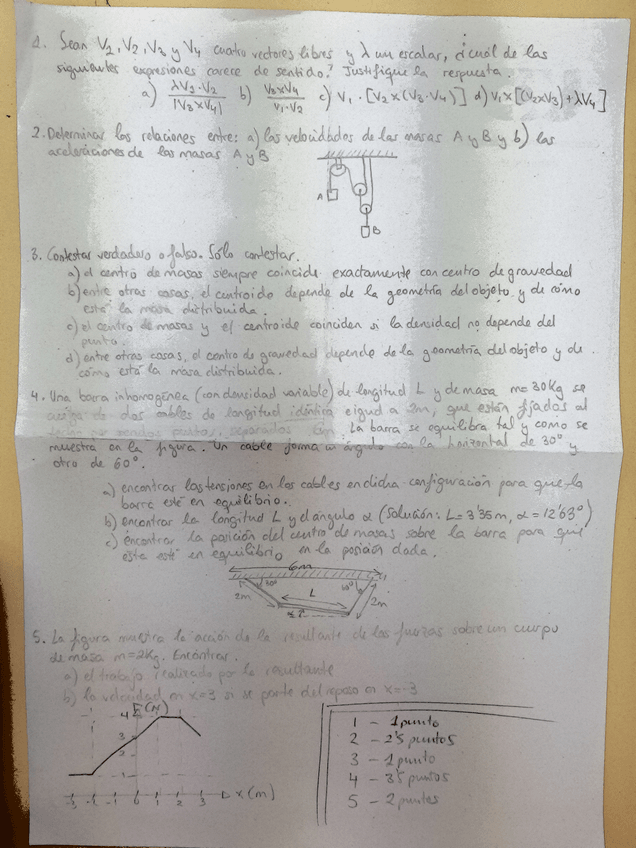 1. Sean V1, V2, V3 y V4 cuatro vectores libres y λ un escalar, ¿cuál de las
siguientes expresiones carece de sentido? Justifique la respuesta.
a) λV2·V2 / |V3×V4| b) V3×V4 / V1·V2 c) V1·[V2×(V3·V4)] d) V1×[(V2×V3)+λV4]
2. Determinar las relaciones entre: a) las velocidades de las masas A y B y b) las
aceleraciones de las masas A y B
A
B
3. Contestar verdadero o falso. Sólo contestar.
a) el centro de masas siempre coincide exactamente con centro de gravedad
b) entre otras cosas, el centroide depende de la geometría del objeto y de cómo
está la masa distribuida.
c) el centro de masas y el centroide coinciden si la densidad no depende del
punto.
d) entre otras cosas, el centro de gravedad depende de la geometría del objeto y de
cómo está la masa distribuida.
4. Una barra inhomogénea (con densidad variable) de longitud L y de masa m=30Kg se
de dos cables de longitud idéntica e igual a 2m, que están fijados al
puntos separados 6m. La barra se equilibra tal y como se
muestra en la figura. Un cable forma un ángulo con la horizontal de 30° y
otro de 60°.
a) encontrar las tensiones en los cables en dicha configuración para que la
barra esté en equilibrio.
b) encontrar la longitud L y el ángulo α (solución: L=3'35m, α=12'63°)
c) encontrar la posición del centro de masas sobre la barra para que
esta esté en equilibrio en la posición dada.
6m
30° 60°
2m L 2m
5. La figura muestra la acción de la resultante de las fuerzas sobre un cuerpo
de masa m=2Kg. Encontrar.
a) el trabajo realizado por la resultante
b) la velocidad en x=3 si se parte del reposo en x=-3
F(N)
4
3
2
1
-1 0 1 2 3 x(m)
1 - 1 punto
2 - 2'5 puntos
3 - 1 punto
4 - 3'5 puntos
5 - 2 puntos